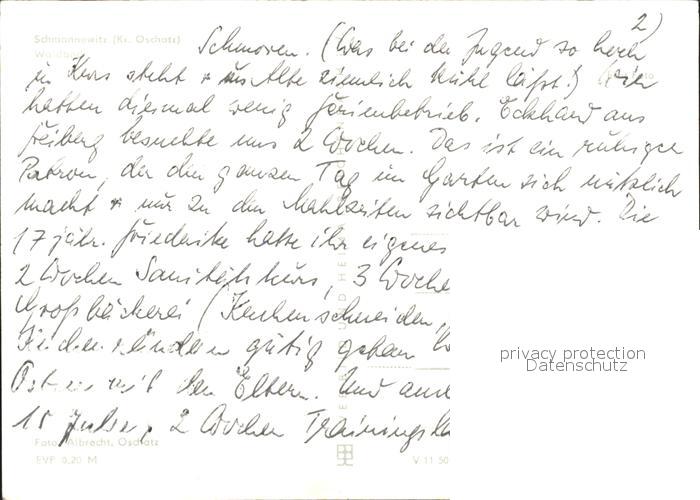 2)
Schmannewitz (Kr. Oschatz)
Waldbad
Schmoren. (Was bei der Jugend so hoch
im Kurs steht + uns Alte ziemlich kühl läßt!) Wir
hatten diesmal wenig Ferienbetrieb. Eckhard aus
Freiberg besuchte uns 2 Wochen. Das ist ein ruhiger
Patron, der den ganzen Tag im Garten sich nützlich
macht + nur zu den Mahlzeiten sichtbar wird. Die
17 jähr. Friederike hatte ihr eigenes
2 Wochen Sanitätskurs, 3 Woche
Großbäckerei (Kuchenschneiden,
gütig geben
Ostsee mit den Eltern. Und
15 2 Wochen Trainings
Foto: Albrecht, Oschatz
EVP 0,20 M
V 11 50
UND HEI
privacy protection
Datenschutz